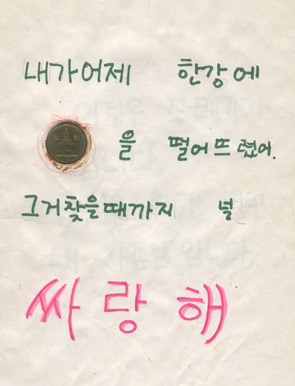 내가어제 한강에
을 떨어뜨렸어.
그거찾을때까지 널
싸랑해